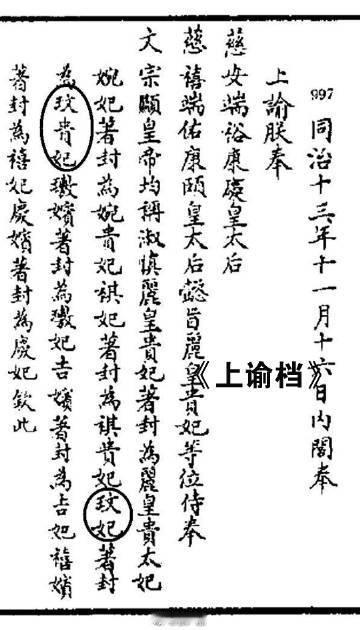 997
同治十三年十一月十六日内閣奉
上諭朕奉
慈安端裕康慶皇太后
慈禧端佑康頤皇太后懿旨麗皇貴妃等位侍奉
文宗顯皇帝均稱淑慎麗皇貴妃著封為麗皇貴太妃
婉妃著封為婉貴妃祺妃著封為祺貴妃玟妃著封
為玟貴妃璷嬪著封為璷妃吉嬪著封為吉妃禧嬪
著封為禧妃慶嬪著封為慶妃欽此
《上谕档》